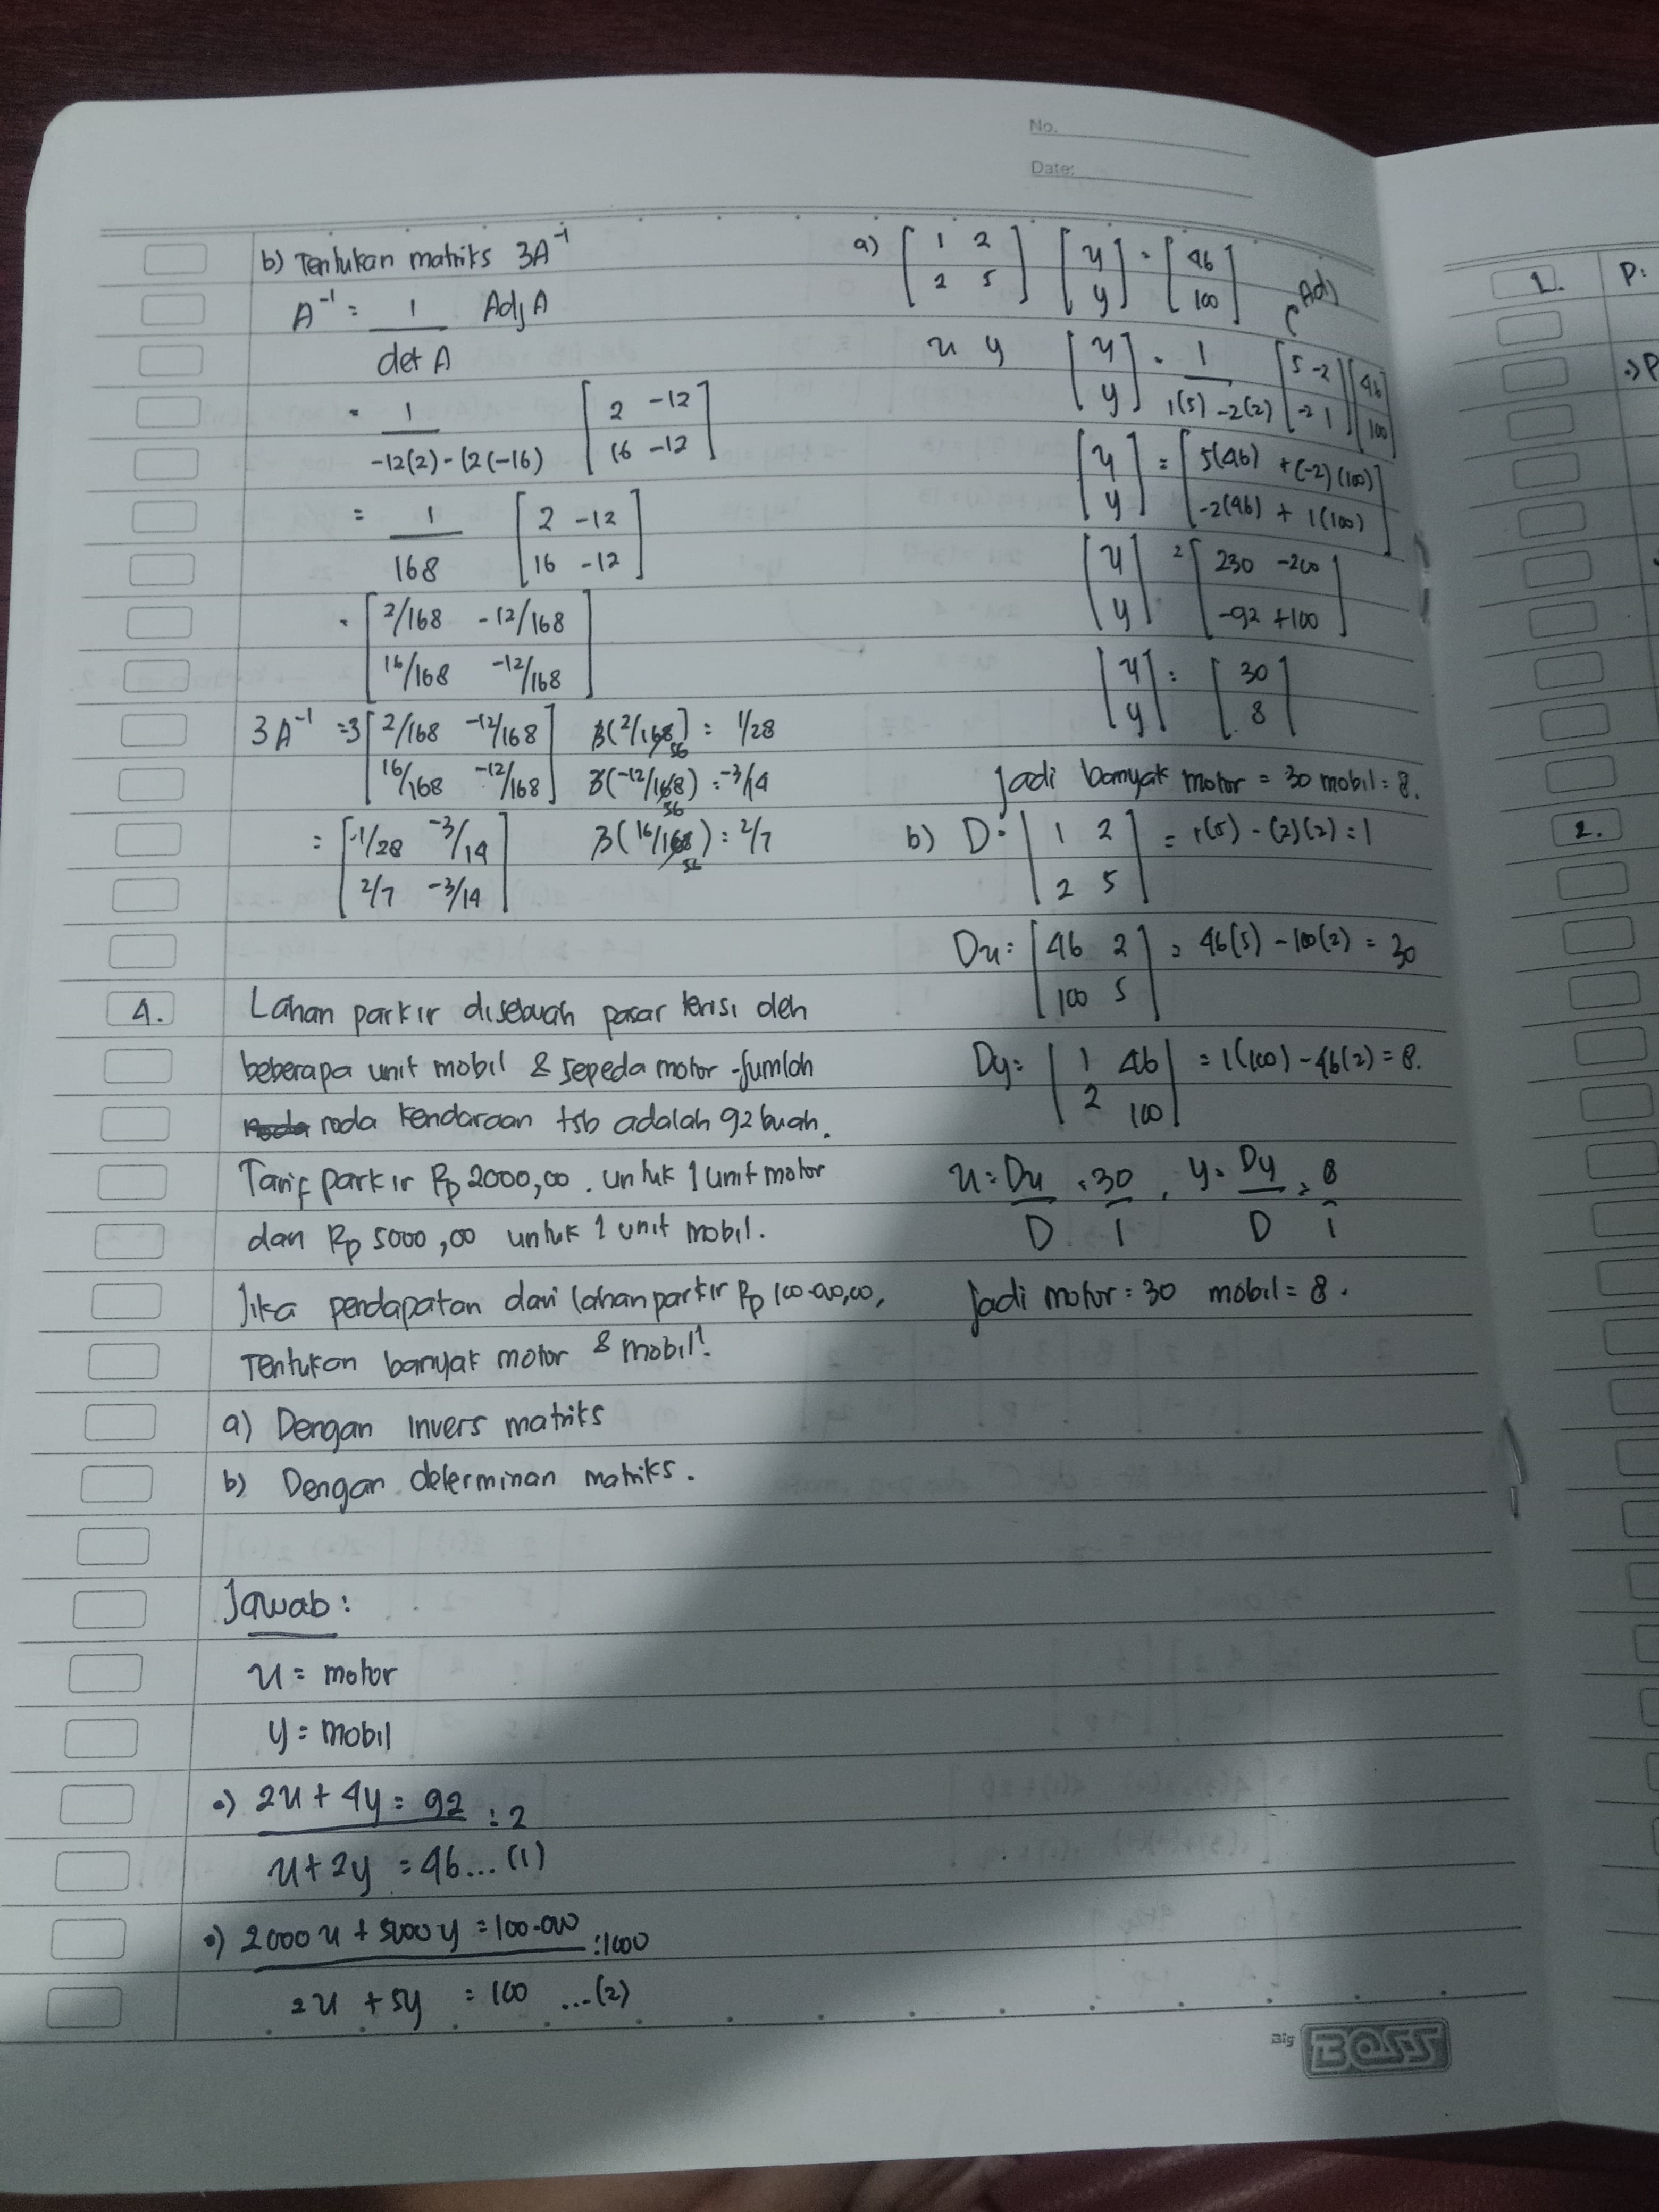 No.
Date:
b) Tentukan matriks 3A⁻¹
A⁻¹ = 1/det A Adj A
= 1/-12(2)-(2(-16) [2 -12; 16 -12]
= 1/168 [2 -12; 16 -12]
= [2/168 -12/168; 16/168 -12/168]
3A⁻¹ = 3 [2/168 -12/168; 16/168 -12/168]
3(2/168) = 1/28
3(-12/168) = -3/14
3(16/168) = 2/7
= [-1/28 -3/14; 2/7 -3/14]
4.
Lahan parkir disebuah pasar terisi oleh
beberapa unit mobil & sepeda motor. Jumlah
roda kendaraan tsb adalah 92 buah.
Tarif parkir Rp 2000,00. untuk 1 unit motor
dan Rp 5000,00 untuk 1 unit mobil.
Jika pendapatan dari lahan parkir Rp 100.000,00,
Tentukan banyak motor & mobil!
a) Dengan invers matriks
b) Dengan determinan matriks.
Jawab:
x = motor
y = mobil
•) 2x + 4y = 92 :2
x + 2y = 46 ... (1)
•) 2000x + 5000y = 100.000 :1000
2x + 5y = 100 ...(2)
a) [1 2; 2 5] [x; y] = [46; 100]
Adj
x y [x; y] = 1/1(5)-2(2) [5 -2; -2 1] [46; 100]
[x; y] = [5(46) + (-2)(100); -2(46) + 1(100)]
[x; y] = [230 -200; -92 +100]
[x; y] = [30; 8]
Jadi banyak motor = 30 mobil = 8.
b) D = |1 2; 2 5| = 1(5) - (2)(2) = 1
Dx = |46 2; 100 5| = 46(5) - 100(2) = 30
Dy = |1 46; 2 100| = 1(100) - 46(2) = 8.
x = Dx/D = 30/1, y = Dy/D = 8/1
Jadi motor = 30 mobil = 8.
Big BOSS
1. P:
•) P
2.